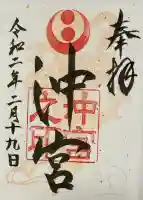 奉拝
沖宮
令和二年二月十九日
沖宮
之印